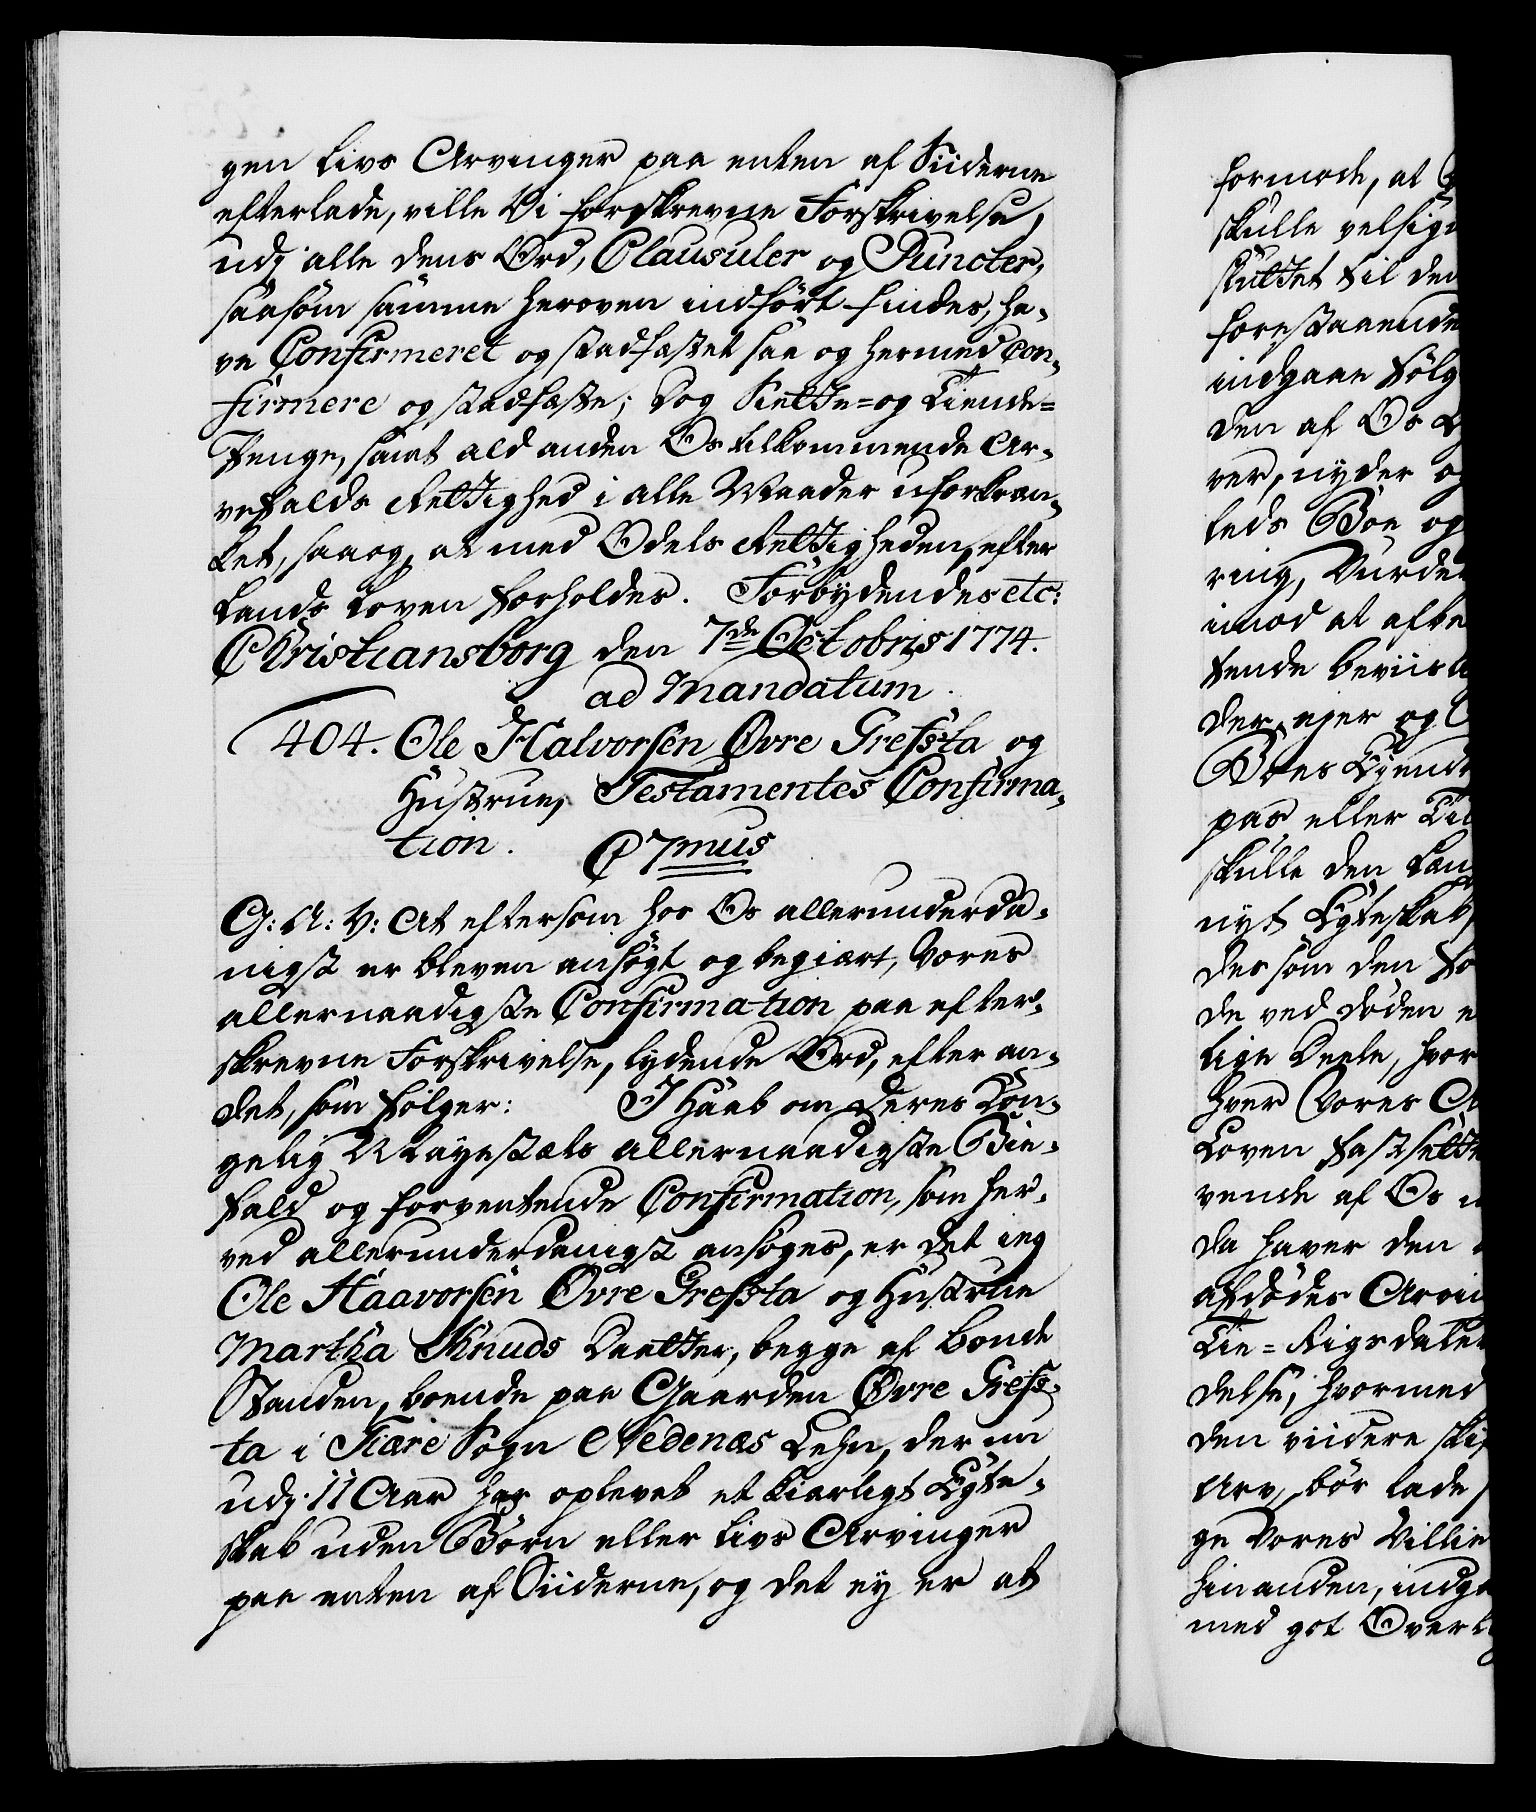 gen Livs Arvinger paa enten af Siiderne
efterlade, ville Vi forskrevne Forskrivelse,
udj alle dens Ord, Clausuler og Puncter,
saasom samme heroven indført findes, ha-
ve Confirmeret og stadfæstet saa og hermed Con-
firmere og stadfæste; Dog Siette- og Tiende-
Penge, samt ald anden Os tilkommende Ar-
vefalds Rettighed i alle Maader uforkræn-
ket, saa og, at med Odels Rettigheden, efter
Lands Loven forholdes. Forbydendes etc:
Christiansborg den 7de Octobris 1774.
ad Mandatum.
404. Ole Halvorsen Øvre Gressta og
Hustrue, Testamentes Confirma-
tion. C 7mus
G: A: V: At eftersom hos Os allerunderda-
nigst er bleven ansøgt og begiært, Vores
allernaadigste Confirmation paa efter-
skrevne Forskrivelse, lydende Ord, efter an-
det, som følger: I Haab om Deres Kon-
gelig Mayestæts allernaadigste Bie-
fald og forventende Confirmation, som her-
ved allerunderdanigst ansøges, er det ieg
Ole Haavorsen Øvre Gressta og Hustrue
Martha Knuds Daatter, begge af Bonde
Standen, boende paa Gaarden Øvre Gress-
ta i Fiære Sogn Nedenæs Lehn, der nu
udj 11 Aar har oplevet et kierligt Egte-
skab uden Børn eller Livs Arvinger
paa enten af Siiderne, og det ey er at
formode, at
skulle velsign
sluttet til den
forestaaende
indgaae følg
den af Os L
ver, nyder og
leds Boe og
ring, Vurder
imod at afbe
tende beviis
der, ejer og
Boes Eyend
pas eller Til
skulle den Læn
nyt Egteskab
des som den fo
de ved døden
lige Deele, hvor
hver Vores A
Loven fastsette
vende af Os
da haver den
afdødes Arvin
Tie-Rigsdaler
delse, hvormed
den viidere skif
Arv, bør lade
ge Vores Villie
hinanden, indga
med got Overl